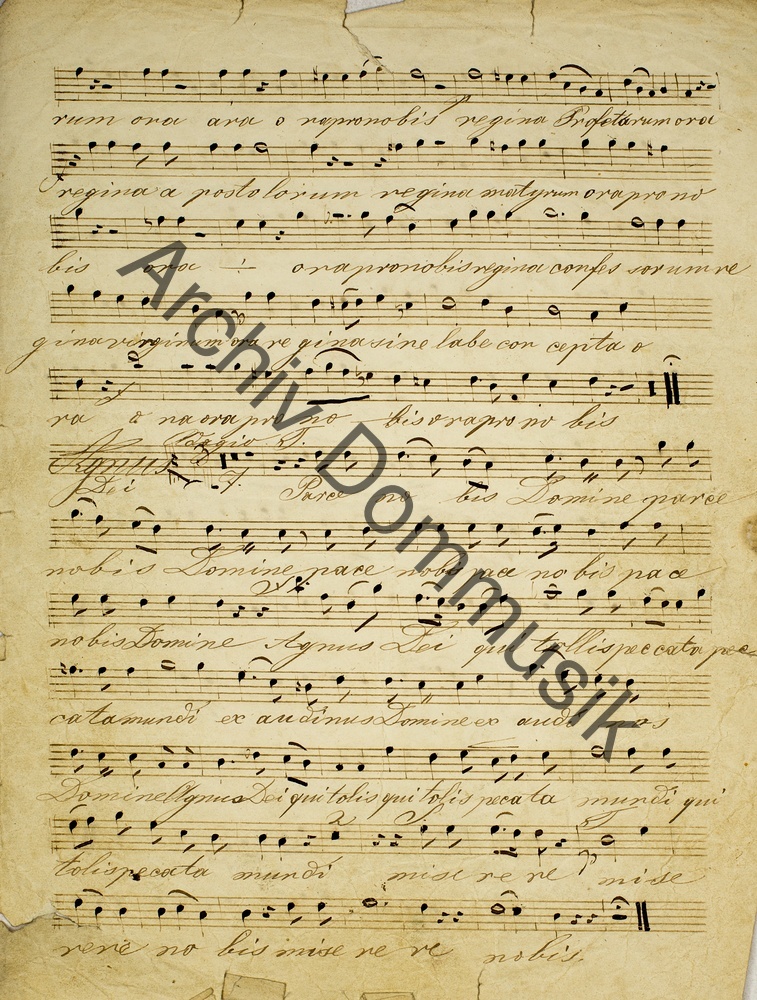 rum ora ora o ra pro nobis regina Profetarum ora
regina a postolorum regina matyrum ora pro no
bis ora ÷ ora pro nobis regina confes sorum re
gina virginum ora re gina sine labe con cepta o
ra o na ora pro no bis ora pro no bis
Agnus Dei Parce no bis Domine parce
nobis Domine pace nobis pace no bis pace
nobis Domine Agnus Dei qui tollis peccata pec
cata mundi ex audi nus Domine ex audi nos
Domine Agnus Dei qui tolis qui tolis pecata mundi qui
tolis pecata mundi mise re re mise
rere no bis mise re re nobis.
Archiv Dommusik